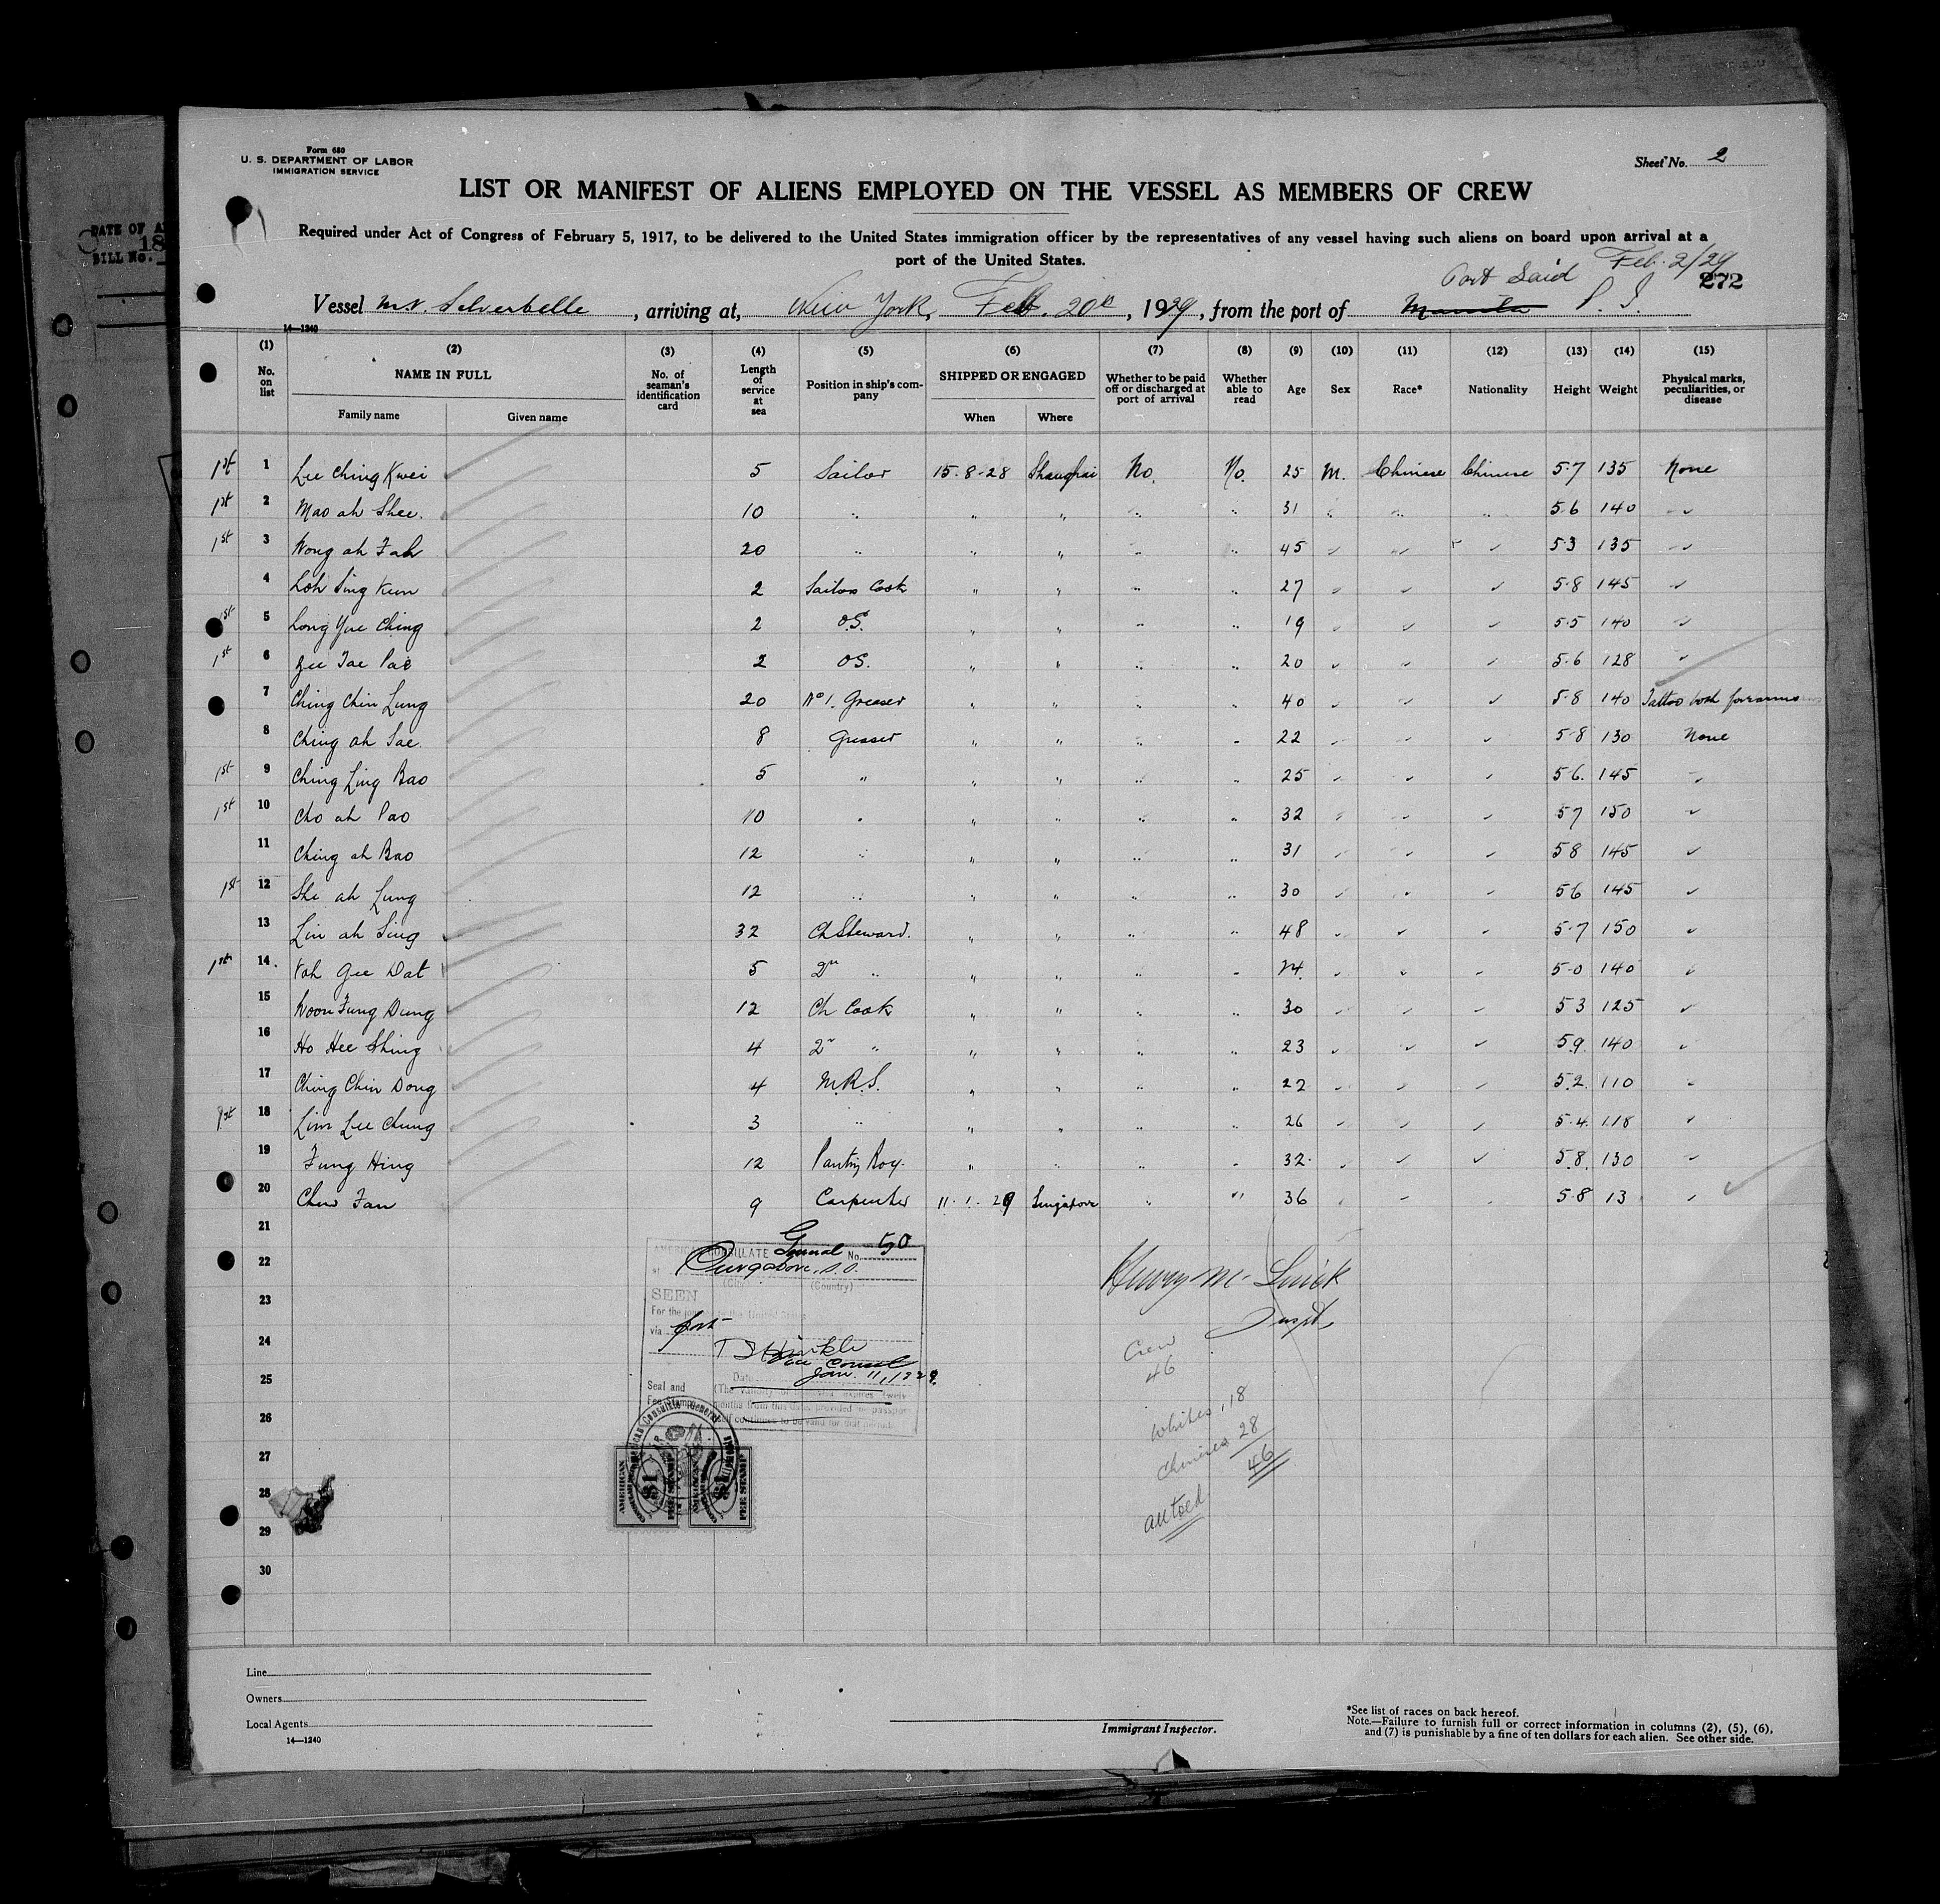 Form 680
U. S. DEPARTMENT OF LABOR
IMMIGRATION SERVICE
Sheet No. 2
LIST OR MANIFEST OF ALIENS EMPLOYED ON THE VESSEL AS MEMBERS OF CREW
Required under Act of Congress of February 5, 1917, to be delivered to the United States immigration officer by the representatives of any vessel having such aliens on board upon arrival at a
port of the United States.
Port Said Feb. 2/29
272
Vessel M.V. Silverbelle, arriving at, New York, Feb. 20th, 1929, from the port of Manila P. I.
14—1240
(1) (2) (3) (4) (5) (6) (7) (8) (9) (10) (11) (12) (13) (14) (15)
No. on list
NAME IN FULL
Family name Given name
No. of seaman's identification card
Length of service at sea
Position in ship's company
SHIPPED OR ENGAGED
When Where
Whether to be paid off or discharged at port of arrival
Whether able to read
Age Sex Race* Nationality Height Weight
Physical marks, peculiarities, or disease
1st 1 Lee Ching Kwei 5 Sailor 15-8-28 Shanghai No. No. 25 M. Chinese Chinese 5 7 135 None
1st 2 Mao ah Shee. 10 " " " " " 31 " " " 5 6 140 "
1st 3 Wong ah Fah 20 " " " " " 45 " " " 5 3 135 "
4 Loh Sing Kun 2 Sailors Cook " " " " 27 " " " 5-8 145 "
1st 5 Long Yue Ching 2 O.S. " " " " 19 " " " 5-5 140 "
1st 6 Zee Tae Pae 2 OS. " " " " 20 " " " 5-6 128 "
7 Ching Chin Lung 20 No 1. Greaser " " " " 40 " " " 5-8 140 Tattoo both forearms
8 Ching ah Tae. 8 Greaser " " " " 22 " " " 5-8 130 None
1st 9 Ching Ling Bao 5 " " " " " 25 " " " 5 6. 145 "
1st 10 Cho ah Pao 10 " " " " " 32 " " " 5 7 150 "
11 Ching ah Bao 12 " " " " " 31 " " " 5 8 145 "
1st 12 She ah Lung 12 " " " " " 30 " " " 5 6 145 "
13 Lin ah Sing 32 Ch Steward. " " " " 48 " " " 5-7 150 "
1st 14 Koh Gee Dat 5 2nd " " " " " 24. " " " 5-0 140 "
15 Woon Fung Dung 12 Ch Cook " " " " 30 " " " 5 3 125 "
16 Ho Hee Shing 4 2nd " " " " " 23 " " " 5.9. 140 "
17 Ching Chin Dong 4 M.R.S. " " " " 22 " " " 5.2. 110 "
1st 18 Lim Lee Chung 3 " " " " " 26 " " " 5-4. 118 "
19 Fung Hing 12 Pantry Boy. " " " " 32. " " " 5.8. 130 "
20 Chew Fan 9 Carpenter 11. 1. 29 Singapore " " 36 " " " 5-8 13 "
21
22
23
24
25
26
27
28
29
30
AMERICAN CONSULATE General No. 50
at Singapore, S.S.
(City) (Country)
SEEN
For the journey to the United States
via port
Vice Consul
Date Jan. 11, 1929.
(The validity of this visa expires twelve
months from this date, provided the passport
continues to be valid for that period)
Seal and
Fee Stamp
AMERICAN
$1
FEE STAMP
AMERICAN
$1
FEE STAMP
Inspt.
Crew
46
Whites, 18
Chinese 28
46
Line
Owners
Local Agents
14—1240
Immigrant Inspector.
*See list of races on back hereof.
Note.—Failure to furnish full or correct information in columns (2), (5), (6),
and (7) is punishable by a fine of ten dollars for each alien. See other side.
DATE OF A
18
BILL No.